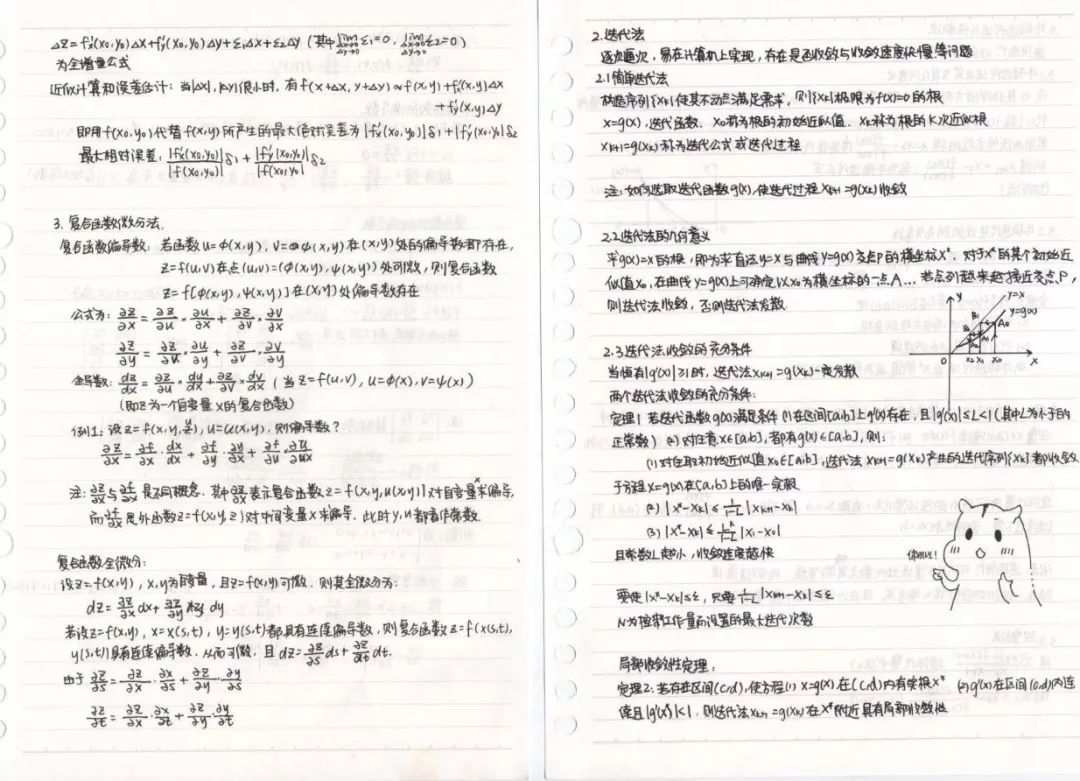 Δz=f'x(x₀,y₀)Δx+f'y(x₀,y₀)Δy+ε₁Δx+ε₂Δy (其中lim ε₁=0, lim ε₂=0)
Δx→0 Δy→0
为全增量公式
近似计算和误差估计: 当|Δx|, |Δy|很小时, 有f(x+Δx, y+Δy)≈f(x,y)+f'x(x,y)Δx
+f'y(x,y)Δy
即用f(x₀,y₀)代替f(x,y)所产生的最大绝对误差为|f'x(x₀,y₀)|δ₁+|f'y(x₀,y₀)|δ₂
最大相对误差: |f'x(x₀,y₀)|/|f(x₀,y₀)| δ₁ + |f'y(x₀,y₀)|/|f(x₀,y₀)| δ₂
3. 复合函数微分法.
复合函数偏导数: 若函数u=φ(x,y), v=ψ(x,y)在(x,y)处的偏导数都存在,
z=f(u,v)在点(u,v)=(φ(x,y),ψ(x,y))处可微, 则复合函数
z=f[φ(x,y),ψ(x,y)]在(x,y)处偏导数存在
公式为: ∂z/∂x = ∂z/∂u · ∂u/∂x + ∂z/∂v · ∂v/∂x
∂z/∂y = ∂z/∂u · ∂u/∂y + ∂z/∂v · ∂v/∂y
全导数: dz/dx = ∂z/∂u · du/dx + ∂z/∂v · dv/dx (当z=f(u,v), u=φ(x), v=ψ(x))
(即z为一个自变量x的复合函数)
例1: 设z=f(x,y,u), u=u(x,y), 则偏导数?
∂z/∂x = ∂f/∂x · dx/dx + ∂f/∂y · ∂y/∂x + ∂f/∂u · ∂u/∂x
注: ∂z/∂x与∂f/∂x是不同概念. 其中∂z/∂x表示复合函数z=f(x,y,u(x,y))对自变量x求偏导,
而∂f/∂x是外函数z=f(x,y,z)对中间变量x求偏导, 此时y,u都看作常数.
复合函数全微分:
设z=f(x,y), x,y为自变量, 且z=f(x,y)可微, 则其全微分为:
dz = ∂z/∂x dx + ∂z/∂y dy
若设z=f(x,y), x=x(s,t), y=y(s,t)都具有连续偏导数, 则复合函数z=f(x(s,t),
y(s,t))具有连续偏导数, 从而可微, 且 dz=∂z/∂s ds+∂z/∂t dt.
由于 ∂z/∂s = ∂z/∂x · ∂x/∂s + ∂z/∂y · ∂y/∂s
∂z/∂t = ∂z/∂x · ∂x/∂t + ∂z/∂y · ∂y/∂t
2.迭代法
逐次逼近, 易在计算机上实现, 存在是否收敛与收敛速度快慢等问题
2.1简单迭代法
构造序列{xk}使其不动点满足需求, 则{xk}极限为f(x)=0的根
x=g(x), 迭代函数. x₀称为根的初始近似值. xk称为根的k次近似根
xk+1=g(xk)称为迭代公式或迭代过程
注: 如何选取迭代函数g(x), 使迭代过程xk+1=g(xk)收敛
2.2迭代法的几何意义
求g(x)=x的根, 即为求直线y=x与曲线y=g(x)交点P的横坐标x*. 对于x*的某个初始近
似值x₀, 在曲线y=g(x)上可确定以x₀为横坐标的一点A... 若点列越来越接近交点P,
则迭代法收敛, 否则迭代法发散.
y
y=x
y=g(x)
B₁
A₀
B₂
A₁
0
x₂ x₁ x₀
x
2.3迭代法收敛的充分条件
当恒有|g'(x)|≥1时, 迭代法xk+1=g(xk)一定发散
两个迭代法收敛的充分条件:
定理1 若迭代函数g(x)满足条件 (1)在区间[a,b]上g'(x)存在, 且|g'(x)|≤L<1(其中L为小于1的
正常数) (2)对任意x∈[a,b], 都有g(x)∈[a,b], 则:
(1)对任取初始近似值x₀∈[a,b], 迭代法xk+1=g(xk)产生的迭代序列{xk}都收敛
于方程x=g(x)在[a,b]上的唯一实根
(2) |x*-xk|≤ 1/(1-L) |xk+1-xk|
(3) |x*-xk|≤ L^k/(1-L) |x₁-x₀|
且常数L越小, 收敛速度越快
要使|x*-xk|≤ε, 只要 1/(1-L) |xk+1-xk|≤ε
N为控制工作量而设置的最大迭代次数
局部收敛性定理:
定理2: 若存在区间(c,d), 使方程(1) x=g(x)在(c,d)内有实根x* (2)g'(x)在区间(c,d)内连
续且|g'(x*)|<1, 则迭代法xk+1=g(xk)在x*附近具有局部收敛性